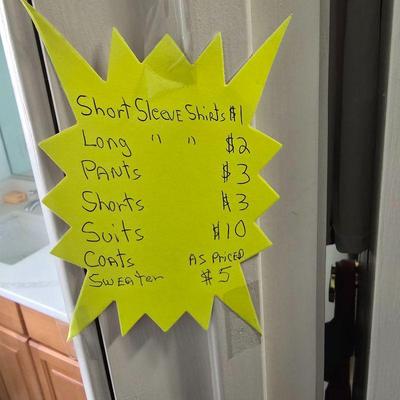 Short Sleeve Shirts $1
Long " " $2
Pants $3
Shorts $3
Suits $10
Coats As Priced
Sweater $5